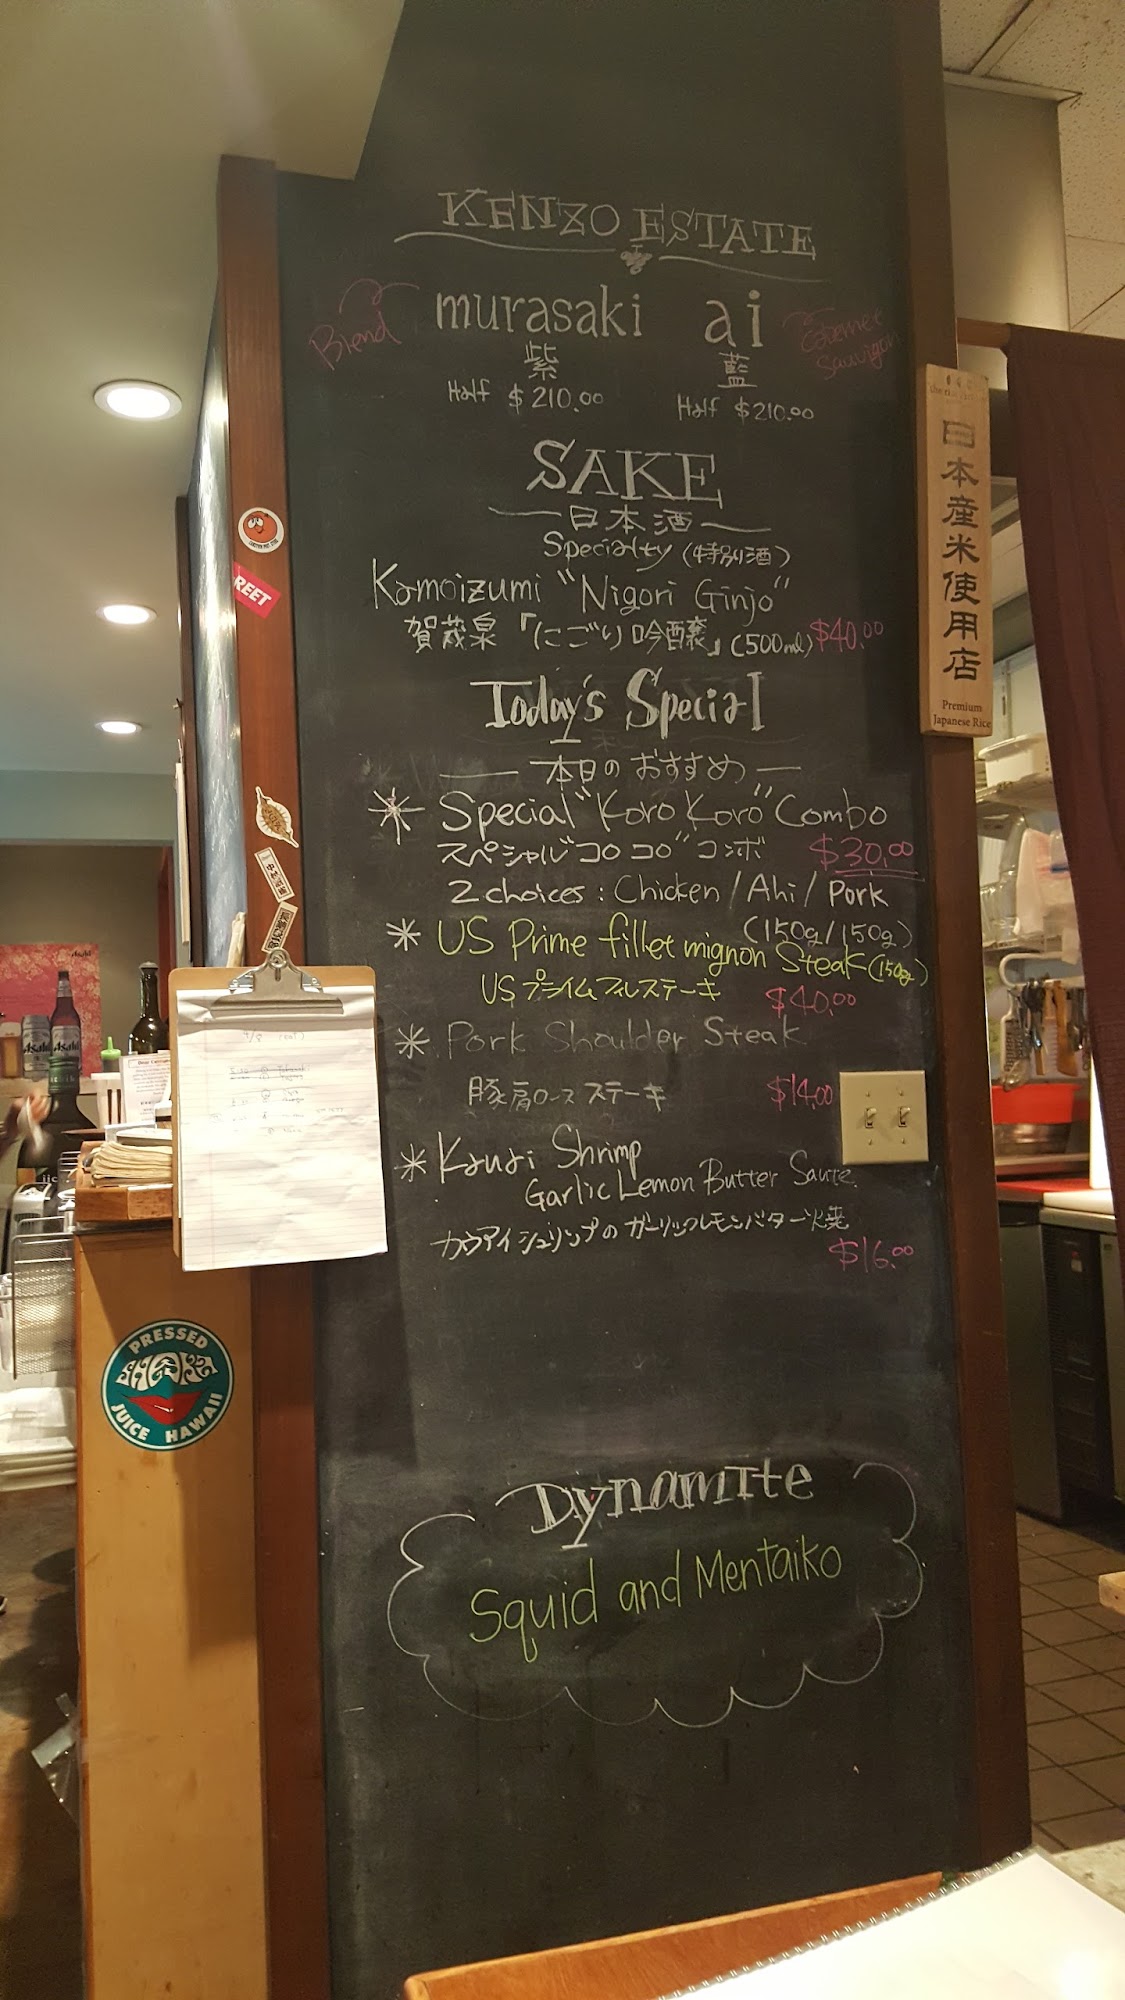 KENZO ESTATE
Blend
murasaki
ai
Cabernet
Sauvignon
紫
藍
Half $210.00
Half $210.00
SAKE
日本酒
Specialty (特別酒)
Kamoizumi "Nigori Ginjo"
賀茂泉「にごり吟醸」(500ml) $40.00
Today's Special
本日のおすすめ
Special "Koro Koro" Combo
スペシャル"コロコロ"コンボ $30.00
2 choices: Chicken / Ahi / Pork
(150g/150g)
US Prime fillet mignon Steak (150g)
USプライムフィレステーキ $40.00
Pork Shoulder Steak
豚肩ロースステーキ $14.00
Kauai Shrimp
Garlic Lemon Butter Saute.
カウアイシュリンプのガーリックレモンバター炒
$16.00
Dynamite
Squid and Mentaiko
日本産米使用店
Premium
Japanese Rice
REET
Asahi
PRESSED
JUICE HAWAII